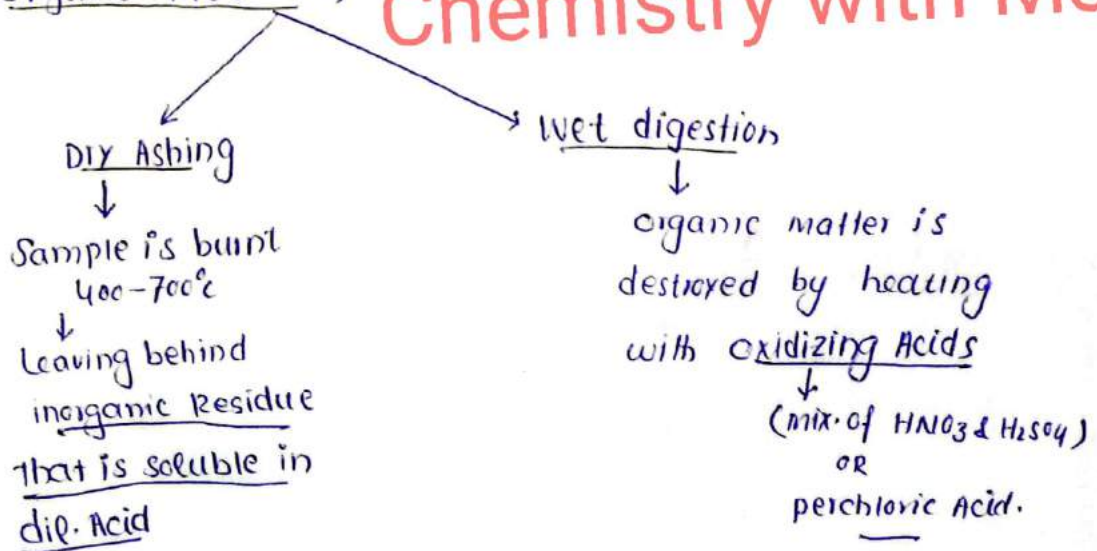 Chemistry with
Dry Ashing
↓
Sample is burnt
400-700°c
↓
Leaving behind
inorganic Residue
that is soluble in
dil. Acid
wet digestion
↓
organic matter is
destroyed by heating
with oxidizing Acids
↓
(mix. of HNO3 & H2SO4)
OR
perchloric Acid.